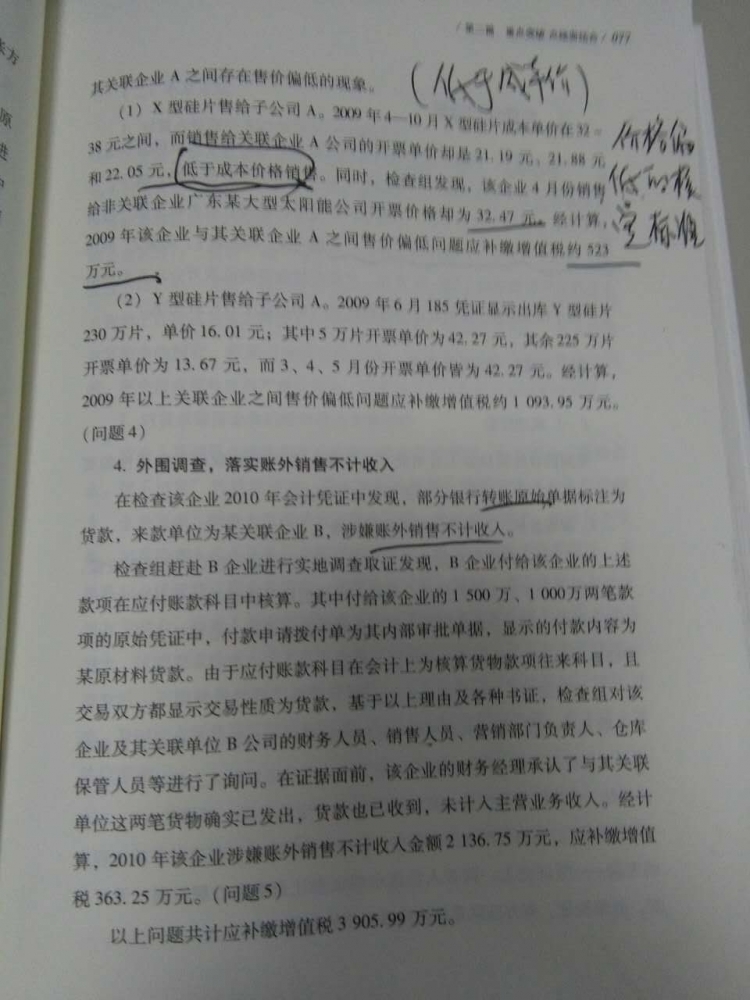 077
其关联企业 A 之间存在售价偏低的现象。
(低于成本价)
(1) X 型硅片售给子公司 A。2009 年 4—10 月 X 型硅片成本单价在 32~
38 元之间，而销售给关联企业 A 公司的开票单价却是 21.19 元、21.88 元
和 22.05 元，低于成本价格销售。同时，检查组发现，该企业 4 月份销售
给非关联企业广东某大型太阳能公司开票价格却为 32.47 元。经计算，
2009 年该企业与其关联企业 A 之间售价偏低问题应补缴增值税约 523
万元。
价格偏
低的核
定标准
(2) Y 型硅片售给子公司 A。2009 年 6 月 185 凭证显示出库 Y 型硅片
230 万片，单价 16.01 元；其中 5 万片开票单价为 42.27 元，其余 225 万片
开票单价为 13.67 元，而 3、4、5 月份开票单价皆为 42.27 元。经计算，
2009 年以上关联企业之间售价偏低问题应补缴增值税约 1 093.95 万元。
(问题 4)
4. 外围调查，落实账外销售不计收入
在检查该企业 2010 年会计凭证中发现，部分银行转账原始单据标注为
货款，来款单位为某关联企业 B，涉嫌账外销售不计收入。
检查组赶赴 B 企业进行实地调查取证发现，B 企业付给该企业的上述
款项在应付账款科目中核算。其中付给该企业的 1 500 万、1 000 万两笔款
项的原始凭证中，付款申请拨付单为其内部审批单据，显示的付款内容为
某原材料货款。由于应付账款科目在会计上为核算货物款项往来科目，且
交易双方都显示交易性质为货款，基于以上理由及各种书证，检查组对该
企业及其关联单位 B 公司的财务人员、销售人员、营销部门负责人、仓库
保管人员等进行了询问。在证据面前，该企业的财务经理承认了与其关联
单位这两笔货物确实已发出，货款也已收到，未计入主营业务收入。经计
算，2010 年该企业涉嫌账外销售不计收入金额 2 136.75 万元，应补缴增值
税 363.25 万元。(问题 5)
以上问题共计应补缴增值税 3 905.99 万元。